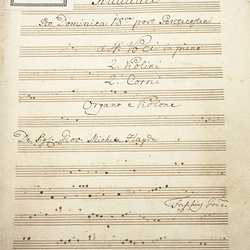 Graduale
Pro Dominica 15ta post Pentecosten
à 4 Voci in pieno
2. Violini
2. Corni
Organo e Violone
De Sigl: Giov: Michele Haydn